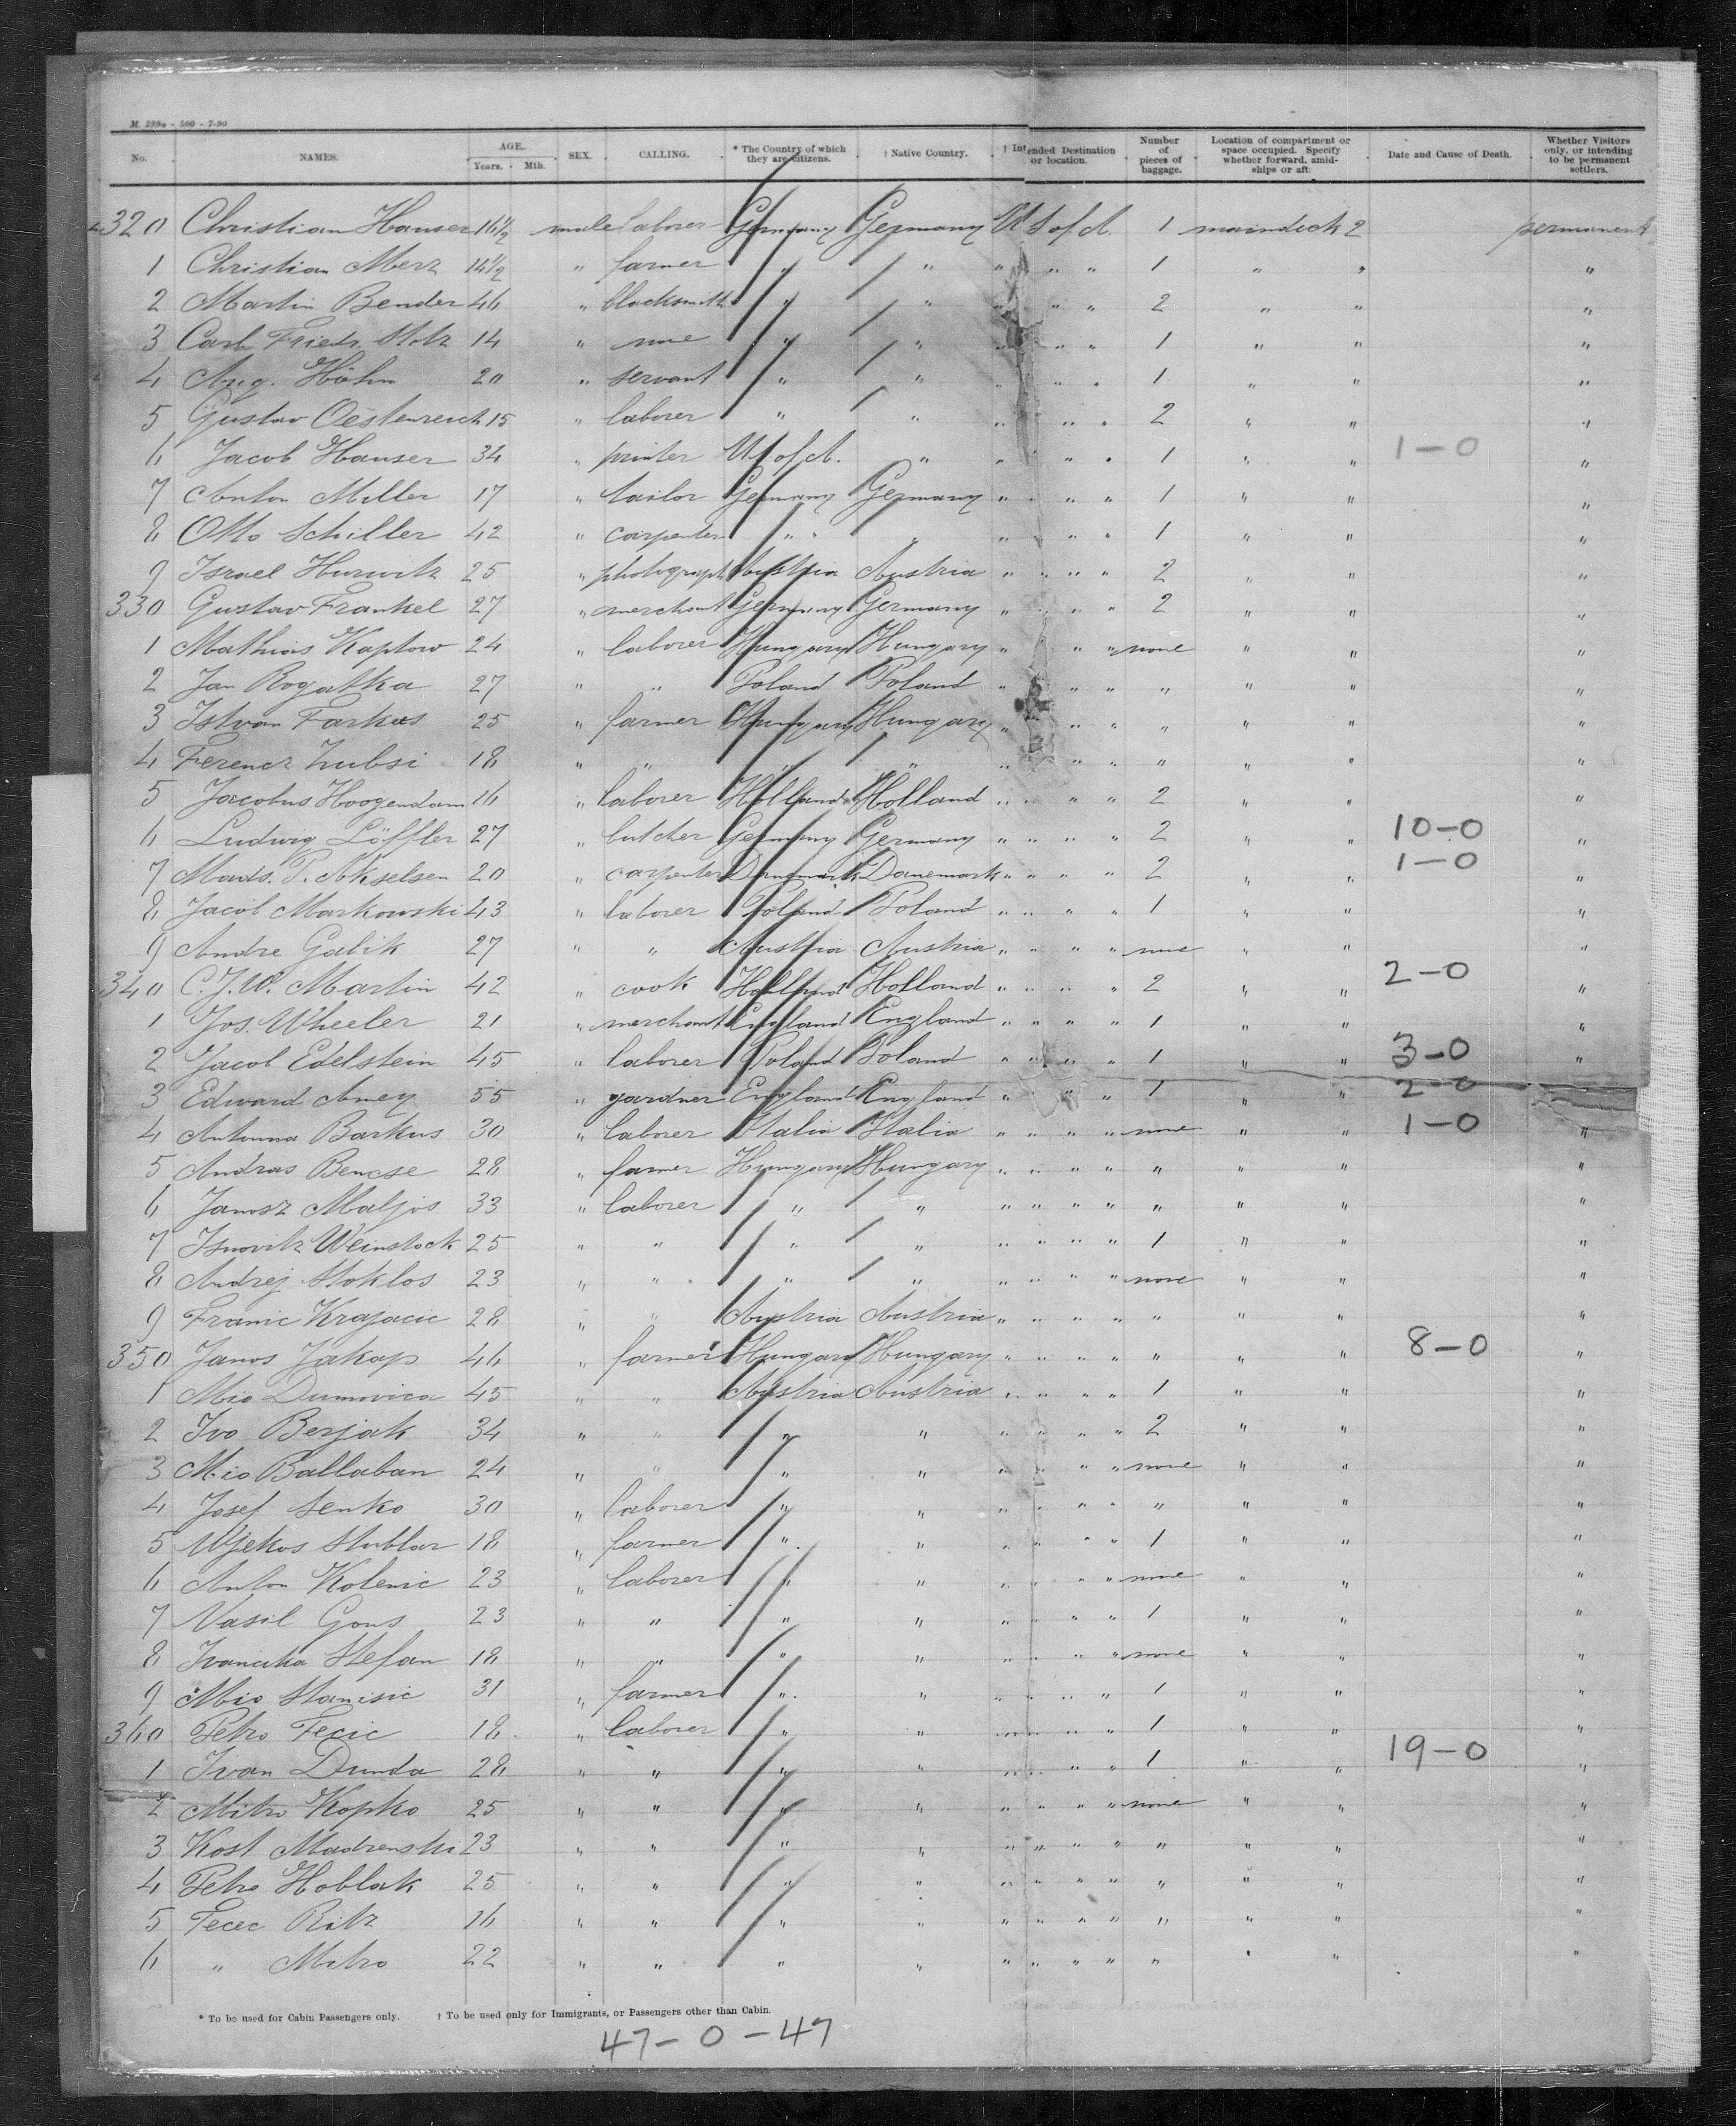 M. 299a - 500 - 7-90
No. NAMES. AGE. Years. Mth. SEX. CALLING. * The Country of which they are citizens. † Native Country. † Intended Destination or location. Number of pieces of baggage. Location of compartment or space occupied. Specify whether forward, amidships or aft. Date and Cause of Death. Whether Visitors only, or intending to be permanent settlers.
320 Christian Hauser male laborer Germany Germany U S of A. 1 maindeck 2 permanent
1 Christian Merz 14½ " farmer " " " " " " 1 " " "
2 Martin Bender 46 " blacksmith " " " " " 2 " " "
3 Carl Friedr. Stolz 14 " none " " " " " 1 " " "
4 Aug. Höhn 20 " servant " " " " " 1 " " "
5 Gustav Oestenreich 15 " laborer " " " " " 2 " " "
6 Jacob Hauser 34 " printer U S of A. " " " " 1 " " 1-0 "
7 Anton Miller 17 " tailor Germany Germany " " " " 1 " " "
8 Otto Schiller 42 " carpenter " " " " " 1 " " "
9 Israel Hurwitz 25 " photograph Austria Austria " " " " 2 " " "
330 Gustav Frankel 27 " merchant Germany Germany " " " " 2 " " "
1 Mathias Kaptow 24 " laborer Hungary Hungary " " " none " " "
2 Jan Rogatka 27 " " Poland Poland " " " " " " "
3 Istvan Farkas 25 " farmer Hungary Hungary " " " " " " "
4 Ferencz Lubsi 18 " " " " " " " " " " "
5 Jacobus Hoogendam 16 " laborer Holland Holland " " " " 2 " " "
6 Ludwig Löffler 27 " butcher Germany Germany " " " " 2 " " 10-0 "
7 Mads. P. Akselsen 20 " carpenter Danemark Danemark " " " " 2 " " 1-0 "
8 Jacob Markowski 43 " laborer Poland Poland " " " " 1 " " "
9 Andre Galik 27 " " Austria Austria " " " " none " " "
340 C. J. W. Martin 42 " cook Holland Holland " " " " 2 " " 2-0 "
1 Jos. Wheeler 21 " merchant England England " " " " 1 " " "
2 Jacob Edelstein 45 " laborer Poland Poland " " " " 1 " " 3-0 "
3 Edward Amey 55 " gardner England England " " " 1 " " 2-0 "
4 Antonna Barkus 30 " laborer Italia Italia " " " " none " " 1-0 "
5 Andras Bencse 28 " farmer Hungary Hungary " " " " " " " "
6 Janosz Maljos 33 " laborer " " " " " " " " " "
7 Isnovitz Weinstock 25 " " " " " " " " 1 " " "
8 Andrej Stoklos 23 " " " " " " " " none " " "
9 Franic Krajacic 28 " " Austria Austria " " " " " " " "
350 Janos Jakap 46 " farmer Hungary Hungary " " " " " " " 8-0 "
1 Mio Dumovica 45 " " Austria Austria " " " " 1 " " "
2 Ivo Berjak 34 " " " " " " " " 2 " " "
3 Mio Ballaban 24 " " " " " " " " none " " "
4 Josef Senko 30 " laborer " " " " " " " " " "
5 Stublar 18 " farmer " " " " " " 1 " " "
6 Anton Kolenic 23 " laborer " " " " " " none " " "
7 Vasil Gons 23 " " " " " " " " 1 " " "
8 Stefan 18 " " " " " " " " none " " "
9 Mio Stanisic 31 " farmer " " " " " " 1 " " "
360 Petro Fecic 18 " laborer " " " " " " 1 " " "
1 Ivan Dunda 28 " " " " " " " " 1 " " 19-0 "
2 Mitro Kopko 25 " " " " " " " " none " " "
3 Kost Madrenski 23 " " " " " " " " " " " "
4 Petro Hoblak 25 " " " " " " " " " " " "
5 Fecec Ritz 16 " " " " " " " " " " " "
6 " Mitro 22 " " " " " " " " " " " "
* To be used for Cabin Passengers only. † To be used only for Immigrants, or Passengers other than Cabin.
47-0-47